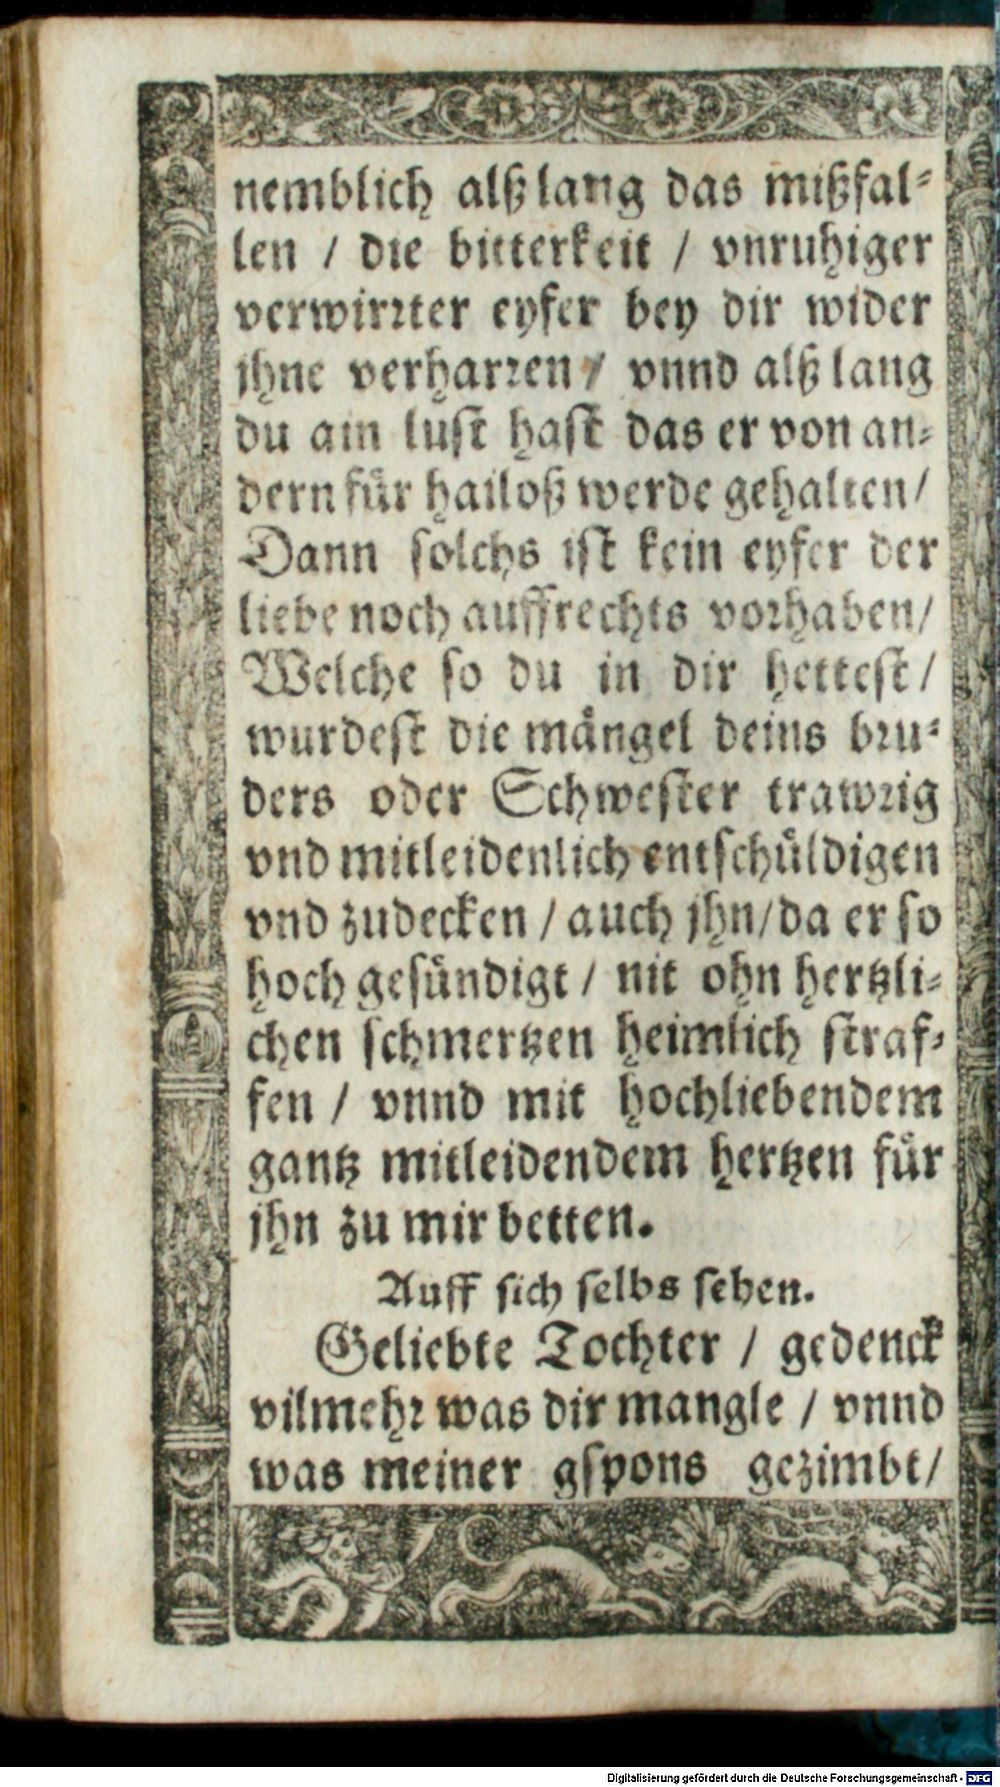 nemblich alß lang das mißfal⸗
len / die bitterkeit / vnruhiger
verwirrter eyfer bey dir wider
jhne verharren / vnnd alß lang
du ain lust hast das er von an⸗
dern für hailoß werde gehalten /
Dann solchs ist kein eyfer der
liebe noch auffrechts vorhaben /
Welche so du in dir hettest /
wurdest die mängel deins bru⸗
ders oder Schwester trawrig
vnd mitleidenlich entschüldigen
vnd zudecken / auch jhn / da er so
hoch gesündigt / nit ohn hertzli⸗
chen schmertzen heimlich straf⸗
fen / vnnd mit hochliebendem
gantz mitleidendem hertzen für
jhn zu mir betten.
Auff sich selbs sehen.
Geliebte Tochter / gedenck
vilmehr was dir mangle / vnnd
was meiner gspons gezimbt /
Digitalisierung gefördert durch die Deutsche Forschungsgemeinschaft - DFG